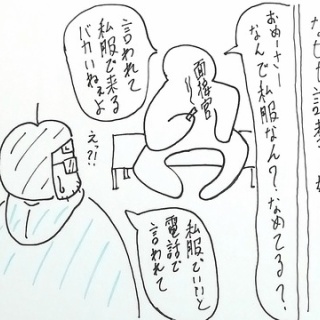 おめーさー
なんで私服なん？なめてる？
面接官
私服でいいと
電話で
言われて
えっ?!
言われて
私服で来る
バカいねぇよ